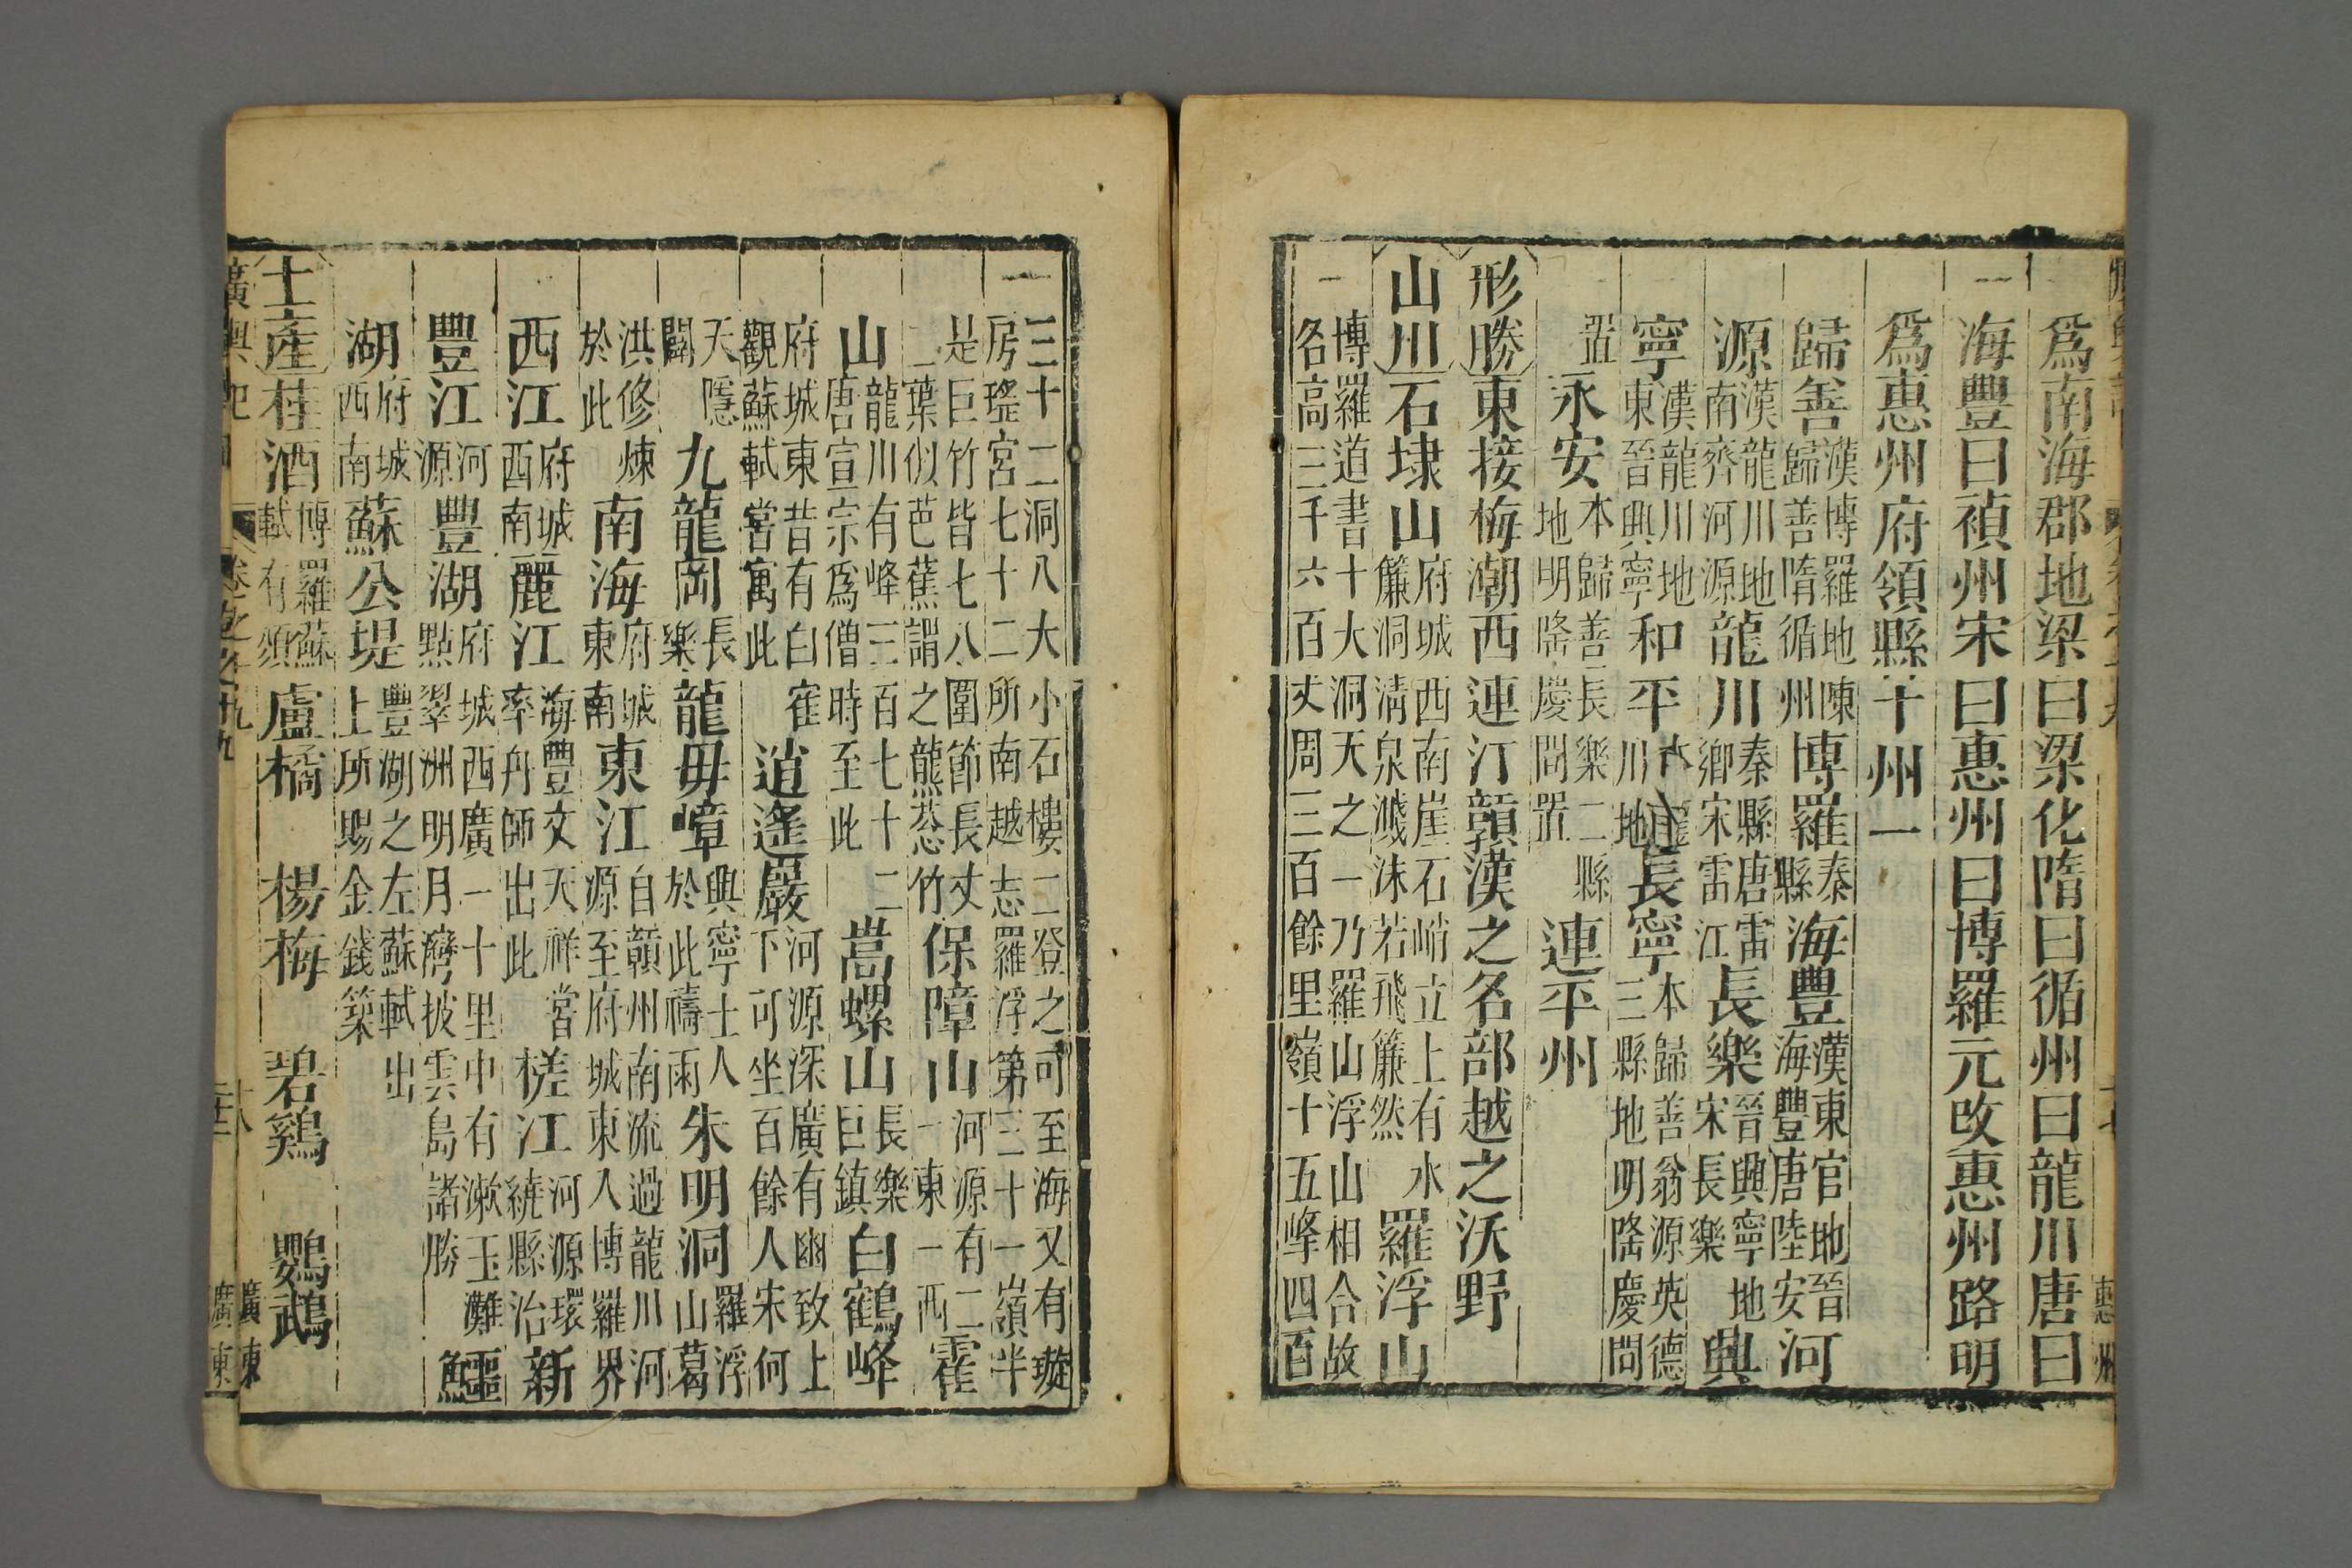 爲南海郡地梁曰梁化隋曰循州曰龍川唐曰
海豐曰禎州宋曰惠州曰博羅元改惠州路明
爲惠州府領縣十州一
歸善漢博羅地陳歸善隋循州博羅秦縣海豐漢東官地晉海豐唐陸安河
源漢龍川地南齊河源龍川秦縣唐雷鄉宋雷江長樂晉興寧地宋長樂興
寧漢龍川地東晉興寧和平本龍川地長寧本歸善翁源英德三縣地明隆慶間
置永安本歸善長樂二縣地明隆慶間置連平州
形勝東接梅潮西連汀贛漢之名部越之沃野
山川石埭山府城西南崖石峭立上有水簾洞淸泉濺沫若飛簾然羅浮山
博羅道書十大洞天之一乃羅山浮山相合故名高三千六百丈周三百餘里嶺十五峰四百
三十二洞八大小石樓二登之可至海又有璇房瑤宮七十二所南越志羅浮第三十一嶺半
是巨竹皆七八圍節長丈二葉似芭蕉謂之龍葱竹保障山河源有二一東一西霍
山龍川有峰三百七十二唐宣宗爲僧時至此嵩螺山長樂巨鎮白鶴峰
府城東昔有白隺觀蘇軾嘗寓此逍遙巖河源深廣有幽致上下可坐百餘人宋何
天隱闢九龍岡長樂龍毋嶂興寧士人於此禱雨朱明洞羅浮山葛
洪修煉於此南海府城東南東江自贛州南流過龍川河源至府城東入博羅界
西江府城西南麗江海豐文天祥嘗率舟師出此槎江河源環繞縣治新
豐江河源豐湖府城西廣一十里中有漱玉灘點翠洲明月灣披雲島諸勝鱷
湖府城西南蘇公堤豐湖之左蘇軾出上所賜金錢築
土產桂酒博羅蘇軾有頌盧橘 楊梅 碧鷄 鸚鵡